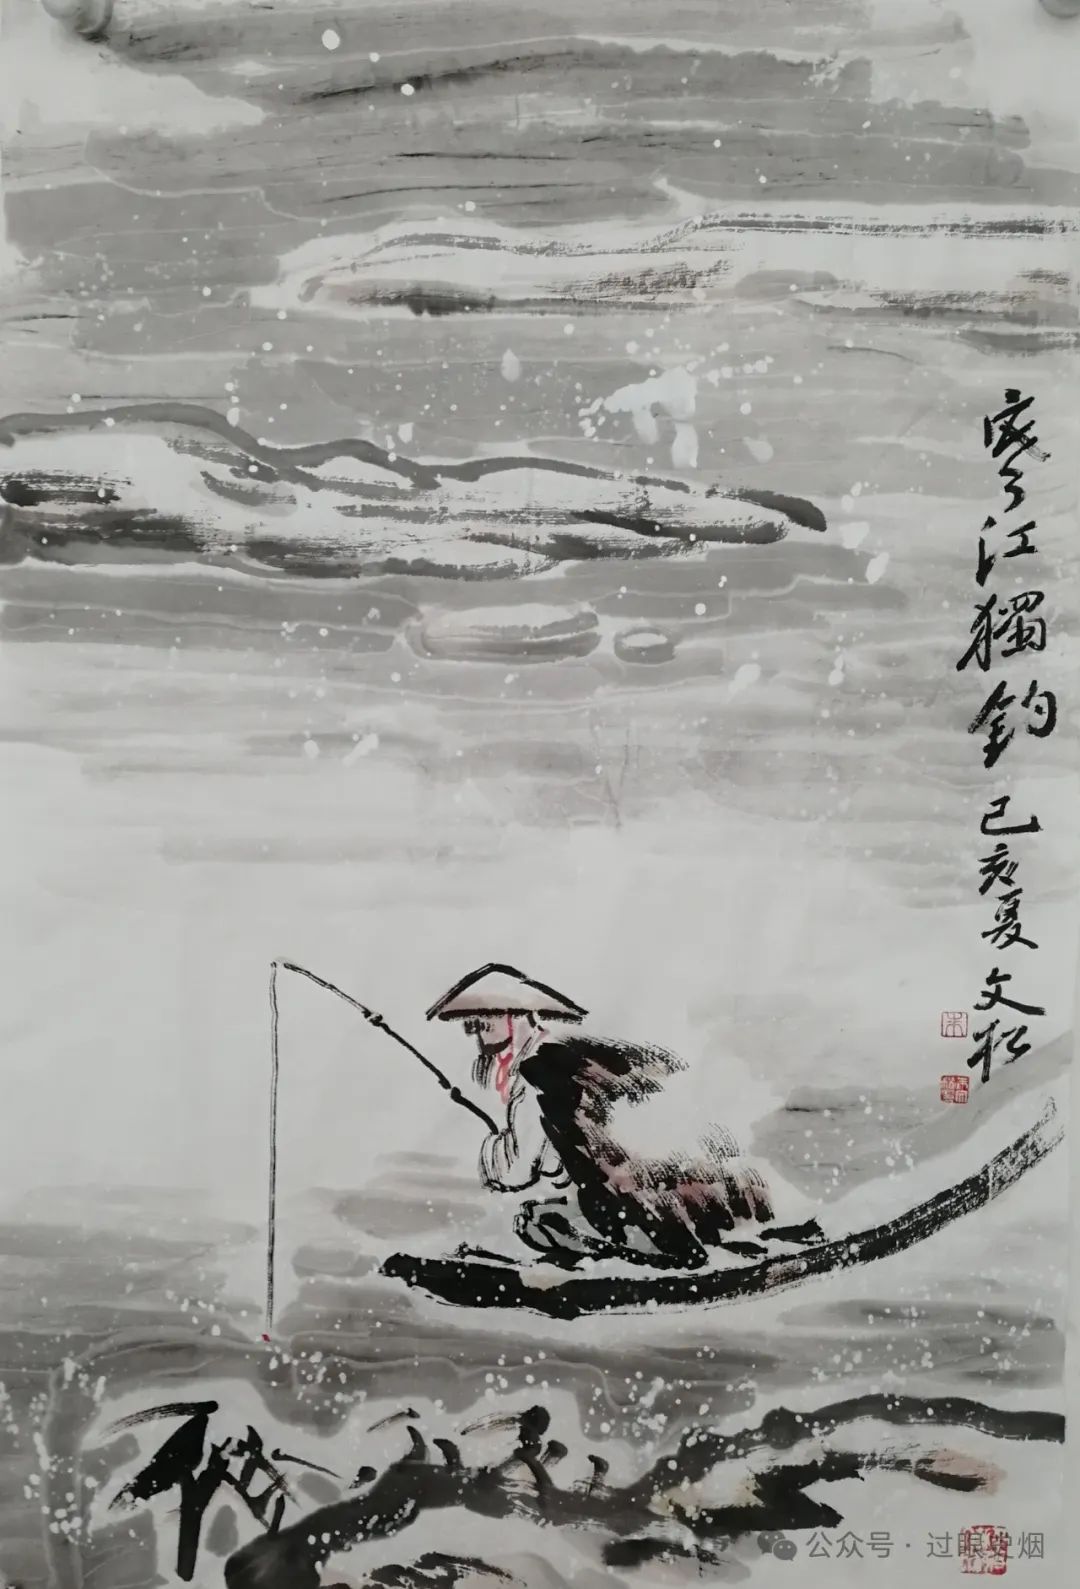 寒江獨釣 己亥夏 文松
公众号 · 过眼云烟